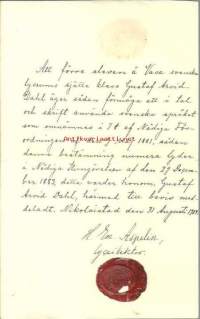 Att förre eleven å Vasa svenska
lyceums sjätte klass Gustaf Arvid
Dahl äger sådan förmåga att i tal
och skrift använda svenska språket
som omnämnes i 7 § af Nådiga För-
ordningen 1881, sådan
denna bestämning numera lyder
i Nådiga Kungörelsen af den 29 De-
cember 1883, detta varder honom, Gustaf
Arvid Dahl, härmed till bevis med-
deladt. Nikolaistad den 31 Augusti
Aspelin,